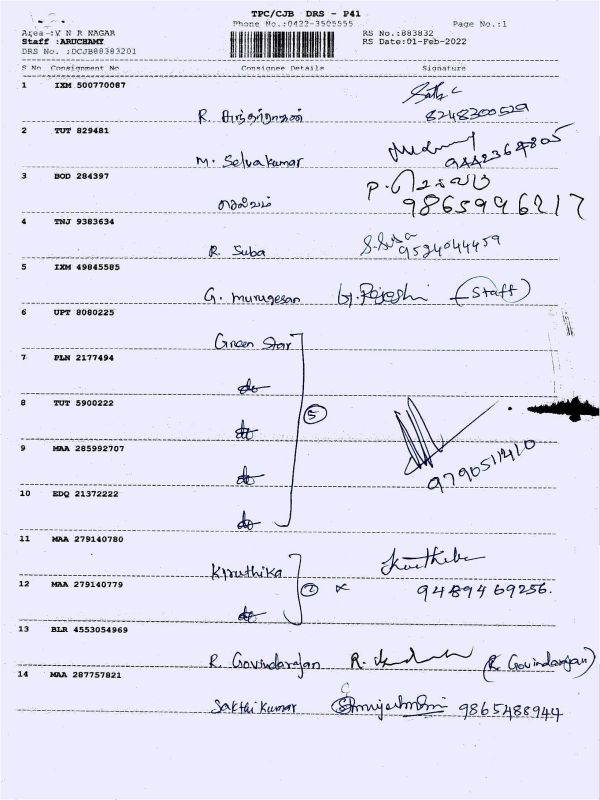 TPC/CJB DRS - P41
Phone No.:0422-3505555
Page No.:1
Area :V N R NAGAR
Staff :ARUCHAMY
DRS No. :DCJB88383201
RS No.:883832
RS Date:01-Feb-2022
S No Consignment No Consignee Details Signature
1 IXM 500770087
R.
8248300529
2 TUT 829481
M. Selvakumar
9442364805
3 BOD 284397
செல்வம் P. செல்வம்
9865996217
4 TNJ 9383634
R. Suba S. Suba
9524044459
5 IXM 49845585
G. Murugesan (Staff)
6 UPT 8080225
Green Star
7 PLN 2177494
do
8 TUT 5900222
do 5
9 MAA 285992707
do 9790511410
10 EDQ 21372222
do
11 MAA 279140780
Kiruthika
12 MAA 279140779
do 2 9489469256.
13 BLR 4553054969
R. Govindarajan R. (R. Govindarajan)
14 MAA 287757821
Sakthi Kumar 9865488944